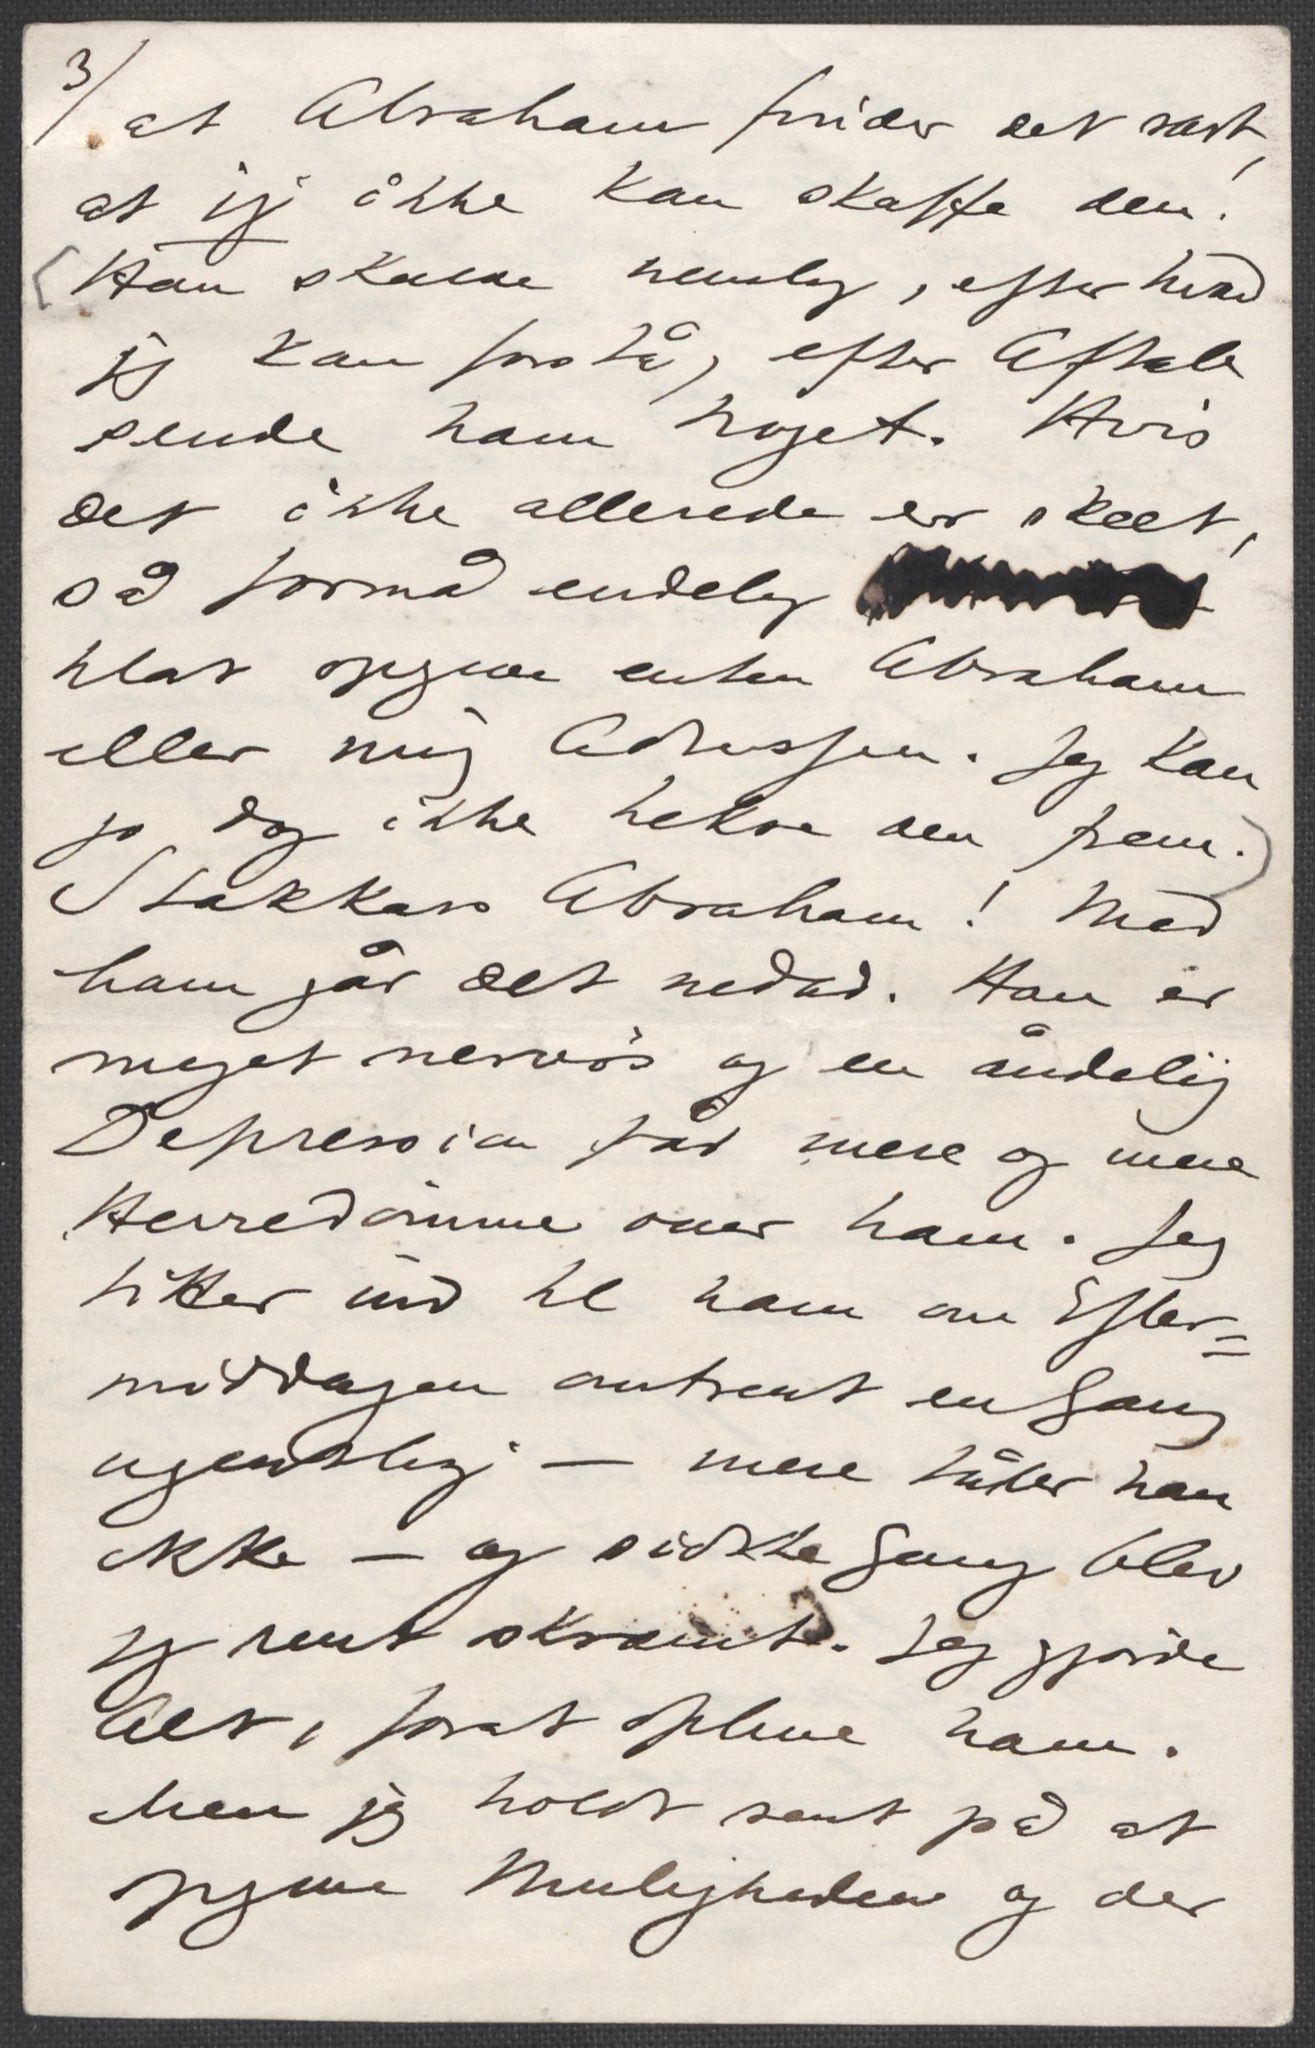 3/
at Abraham finder det sårt,
at jeg ikke kan skaffe den.
(Han skulde nemlig, efter hvad
jeg kan forstå, efter Aftale
sende ham noget. Hvis
det ikke allerede er skeet,
så formå endelig
til at opgive enten Abraham
eller mig Adressen. Jeg kan
jo dog ikke hekse den frem.)
Stakkars Abraham! Med
ham går det nedad. Han er
meget nervøs og en åndelig
Depression får mere og mere
Herredømme over ham. Jeg
titter ind til ham om Efter=
middagen omtrent en Gang
ugentlig – mere tåler han
ikke – og sidste Gang blev
jeg rent skræmt. Jeg gjorde
Alt, forat oplive ham.
Men jeg holdt rent på at
opgive Muligheden og der